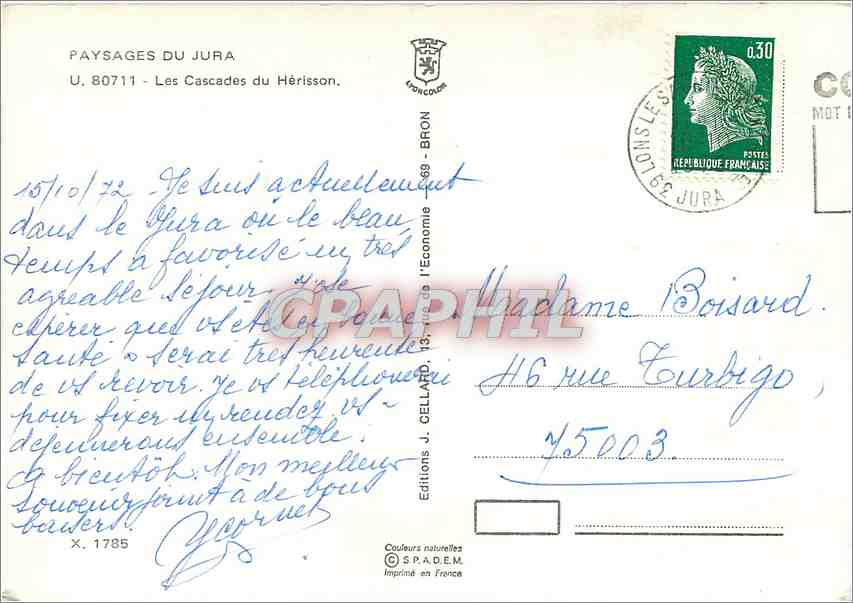 PAYSAGES DU JURA
U. 80711 - Les Cascades du Hérisson.
LYONCOLOR
0,30
POSTES
RÉPUBLIQUE FRANÇAISE
39 LONS LE S
JURA
CO
MOT
15/10/72 - Je suis actuellement
dans le Jura où le beau
temps a favorisé un très
agréable séjour. J'ose
espérer que vs êtes en bonne
santé & serai très heureuse
de vs revoir. Je vs téléphonerai
pour fixer un rendez vs -
déjeunerons ensemble.
à bientôt. Mon meilleur
souvenir joint à de bons
baisers.
Ycornet
X. 1785
Editions J. CELLARD, 13, rue de l'Economie - 69 - BRON
CPRAPHIL
Madame Boisard.
46 rue Turbigo,
75003.
Couleurs naturelles
© S.P.A.D.E.M.
Imprimé en France